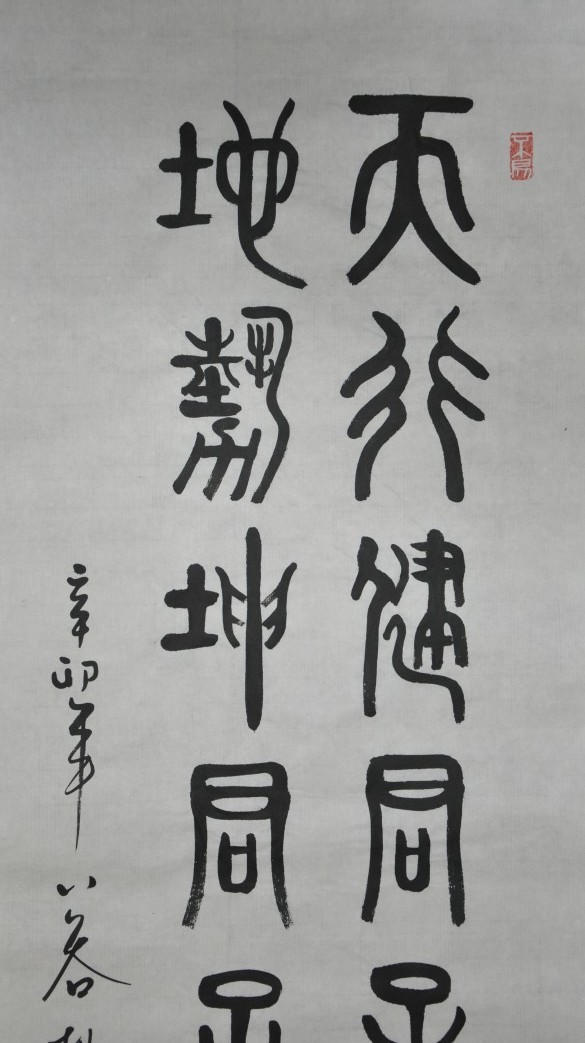 天行健君子
地勢坤君子
辛卯年